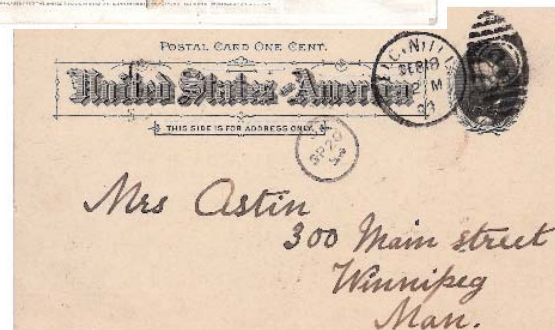 POSTAL CARD ONE CENT.
United States of America
THIS SIDE IS FOR ADDRESS ONLY.
SP 20
Mrs Astin
300 Main street
Winnipeg
Man.